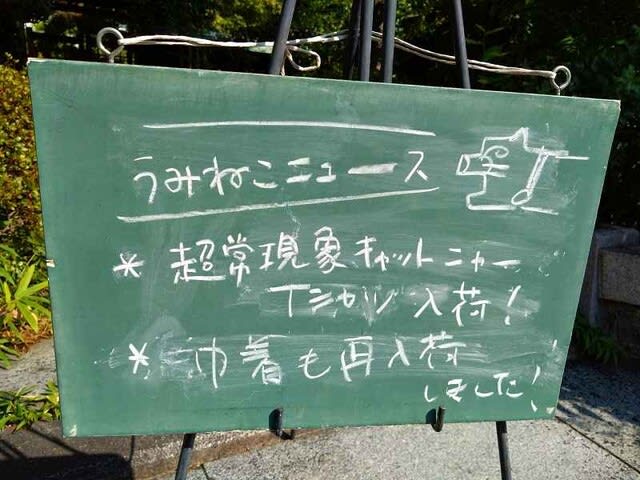 うみねこニュース
* 超常現象キャットニャー
Tシャツ 入荷!
* 巾着も再入荷
しました!